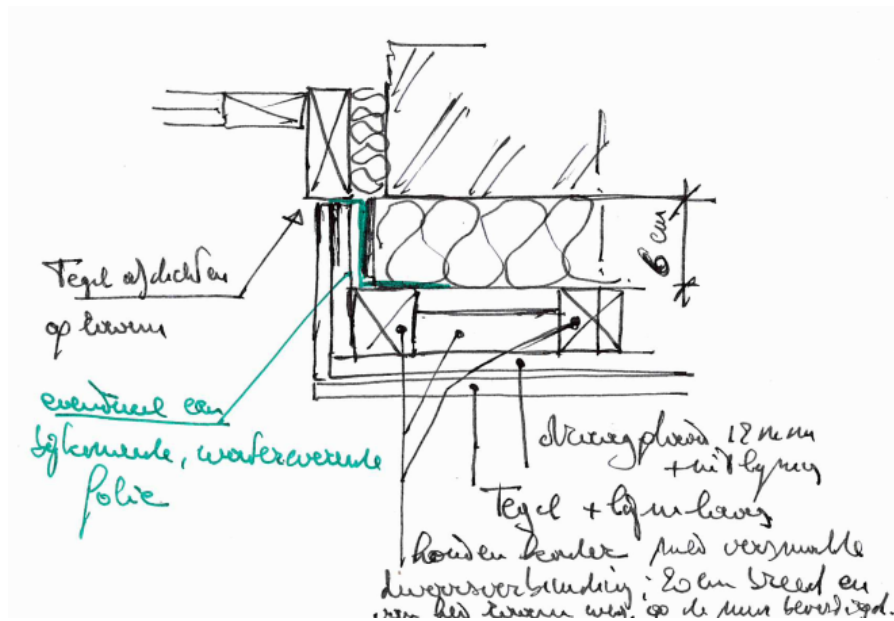 6 cm
Tegel afdichten
op kozijn
eventueel een
bijkomende, waterwerende
folie
draagplaat 12 mm
+ uitlijnen
Tegel + lijmlaag
houten kader met versmalde
dwarsverbinding: 20 cm breed en
van het kozijn weg, op de muur bevestigd.